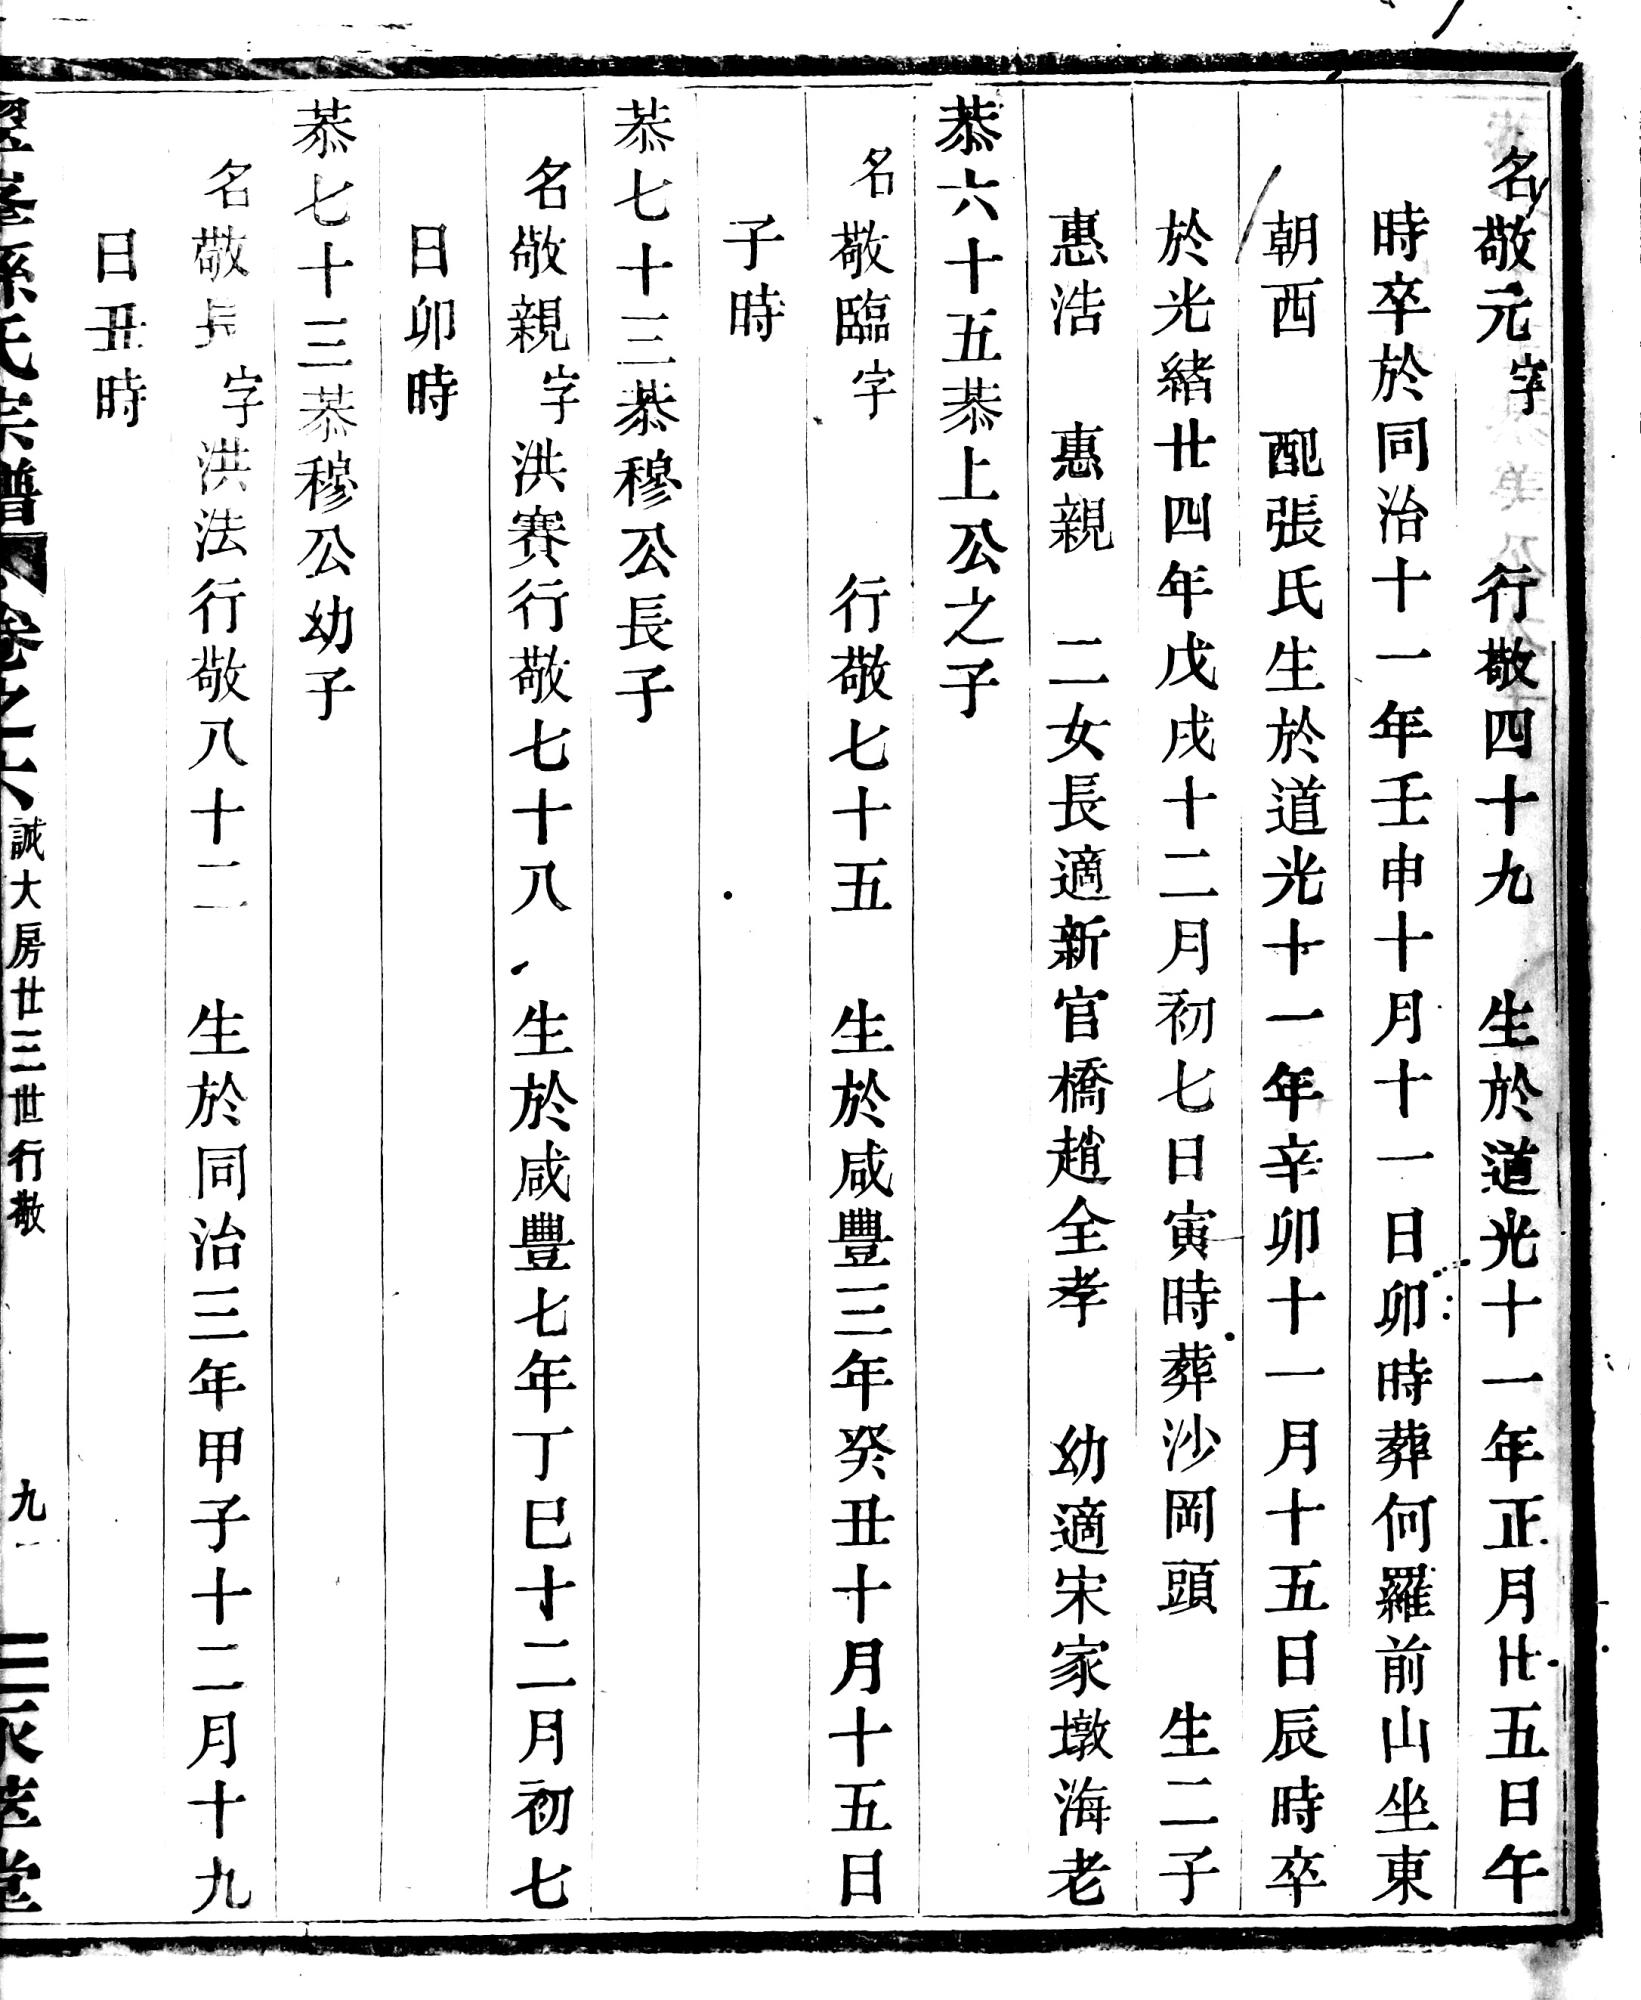 名敬元字 行敬四十九 生於道光十一年正月廿五日午
時卒於同治十一年壬申十月十一日卯時葬何羅前山坐東
朝西 配張氏生於道光十一年辛卯十一月十五日辰時卒
於光緒廿四年戊戌十二月初七日寅時葬沙岡頭 生二子
惠浩 惠親 二女長適新官橋趙全孝 幼適宋家墩海老
恭六十五恭上公之子
名敬臨字 行敬七十五 生於咸豐三年癸丑十月十五日
子時
恭七十三恭穆公長子
名敬親字洪賽行敬七十八 生於咸豐七年丁巳十二月初七
日卯時
恭七十三恭穆公幼子
名敬長字洪法行敬八十二 生於同治三年甲子十二月十九
日丑時
孫氏宗譜 卷之六 誠大房廿三世行敬 九 堂